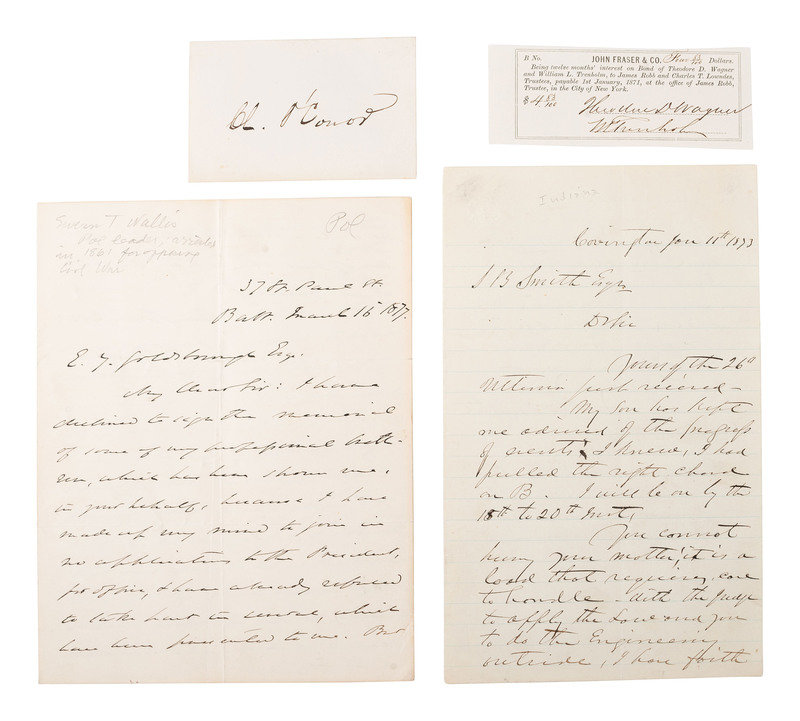 Ch. O'Conor
B No.
JOHN FRASER & CO. Four 53/100 Dollars.
Being twelve months' interest on Bond of Theodore D. Wagner
and William L. Trenholm, to James Robb and Charles T. Lowndes,
Trustees, payable 1st January, 1871, at the office of James Robb,
Trustee, in the City of New York.
$4 53/100
Theodore D Wagner
Wm Trenholm
Severn T Wallis
Pol leader, arrested
in 1861 for opposing
Civil War
Pol
37 St. Paul St
Balt. March 16 1877.
E. Y. Goldsborough Esq.
My dear Sir: I have
declined to sign the memorial
of some of my professional breth-
ren, which has been shown me,
in your behalf, because I have
made up my mind to join in
no application to the President,
for office, & have already refused
to take part in several, which
have been presented to me. But
Indiana
Covington Jan 11th 1873
S B Smith Esqr
D Sir
Yours of the 26th
Ultimo just recieved -
My Son has kept
me advised of the progress
of events & I knew, I had
pulled the right chord
on B. I will be on by the
18th to 20th Inst,
You cannot
hurry your matter, it is a
load that requires care
to handle - With the Judge
to apply the Law and you
to do the Engineering
outside, I have faith